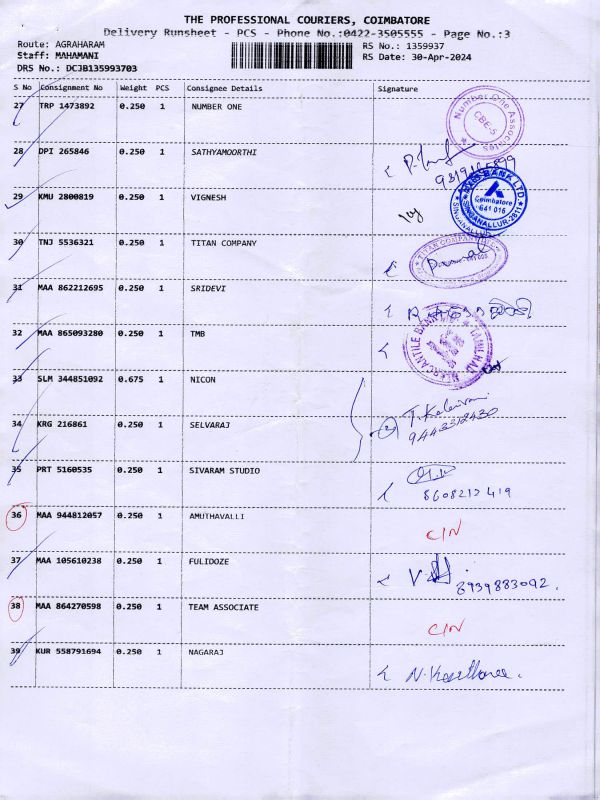 THE PROFESSIONAL COURIERS, COIMBATORE
Delivery Runsheet - PCS - Phone No.:0422-3505555 - Page No.:3
Route: AGRAHARAM
RS No.: 1359937
Staff: MAHAMANI
RS Date: 30-Apr-2024
DRS No.: DCJB135993703
S No Consignment No Weight PCS Consignee Details Signature
27 TRP 1473892 0.250 1 NUMBER ONE
Number One Associates
CBE-5
28 DPI 265846 0.250 1 SATHYAMOORTHI
29 KMU 2800819 0.250 1 VIGNESH
BANK LTD
Coimbatore
641 016
SINGANALLUR
30 TNJ 5536321 0.250 1 TITAN COMPANY
TITAN COMPANY
31 MAA 862212695 0.250 1 SRIDEVI
32 MAA 865093280 0.250 1 TMB
MERCANTILE BANK
33 SLM 344851092 0.675 1 NICON
34 KRG 216861 0.250 1 SELVARAJ
9443312430
35 PRT 5160535 0.250 1 SIVARAM STUDIO
8608212419
36 MAA 944812057 0.250 1 AMUTHAVALLI
C/N
37 MAA 105610238 0.250 1 FULIDOZE
8939883092.
38 MAA 864270598 0.250 1 TEAM ASSOCIATE
C/N
39 KUR 558791694 0.250 1 NAGARAJ